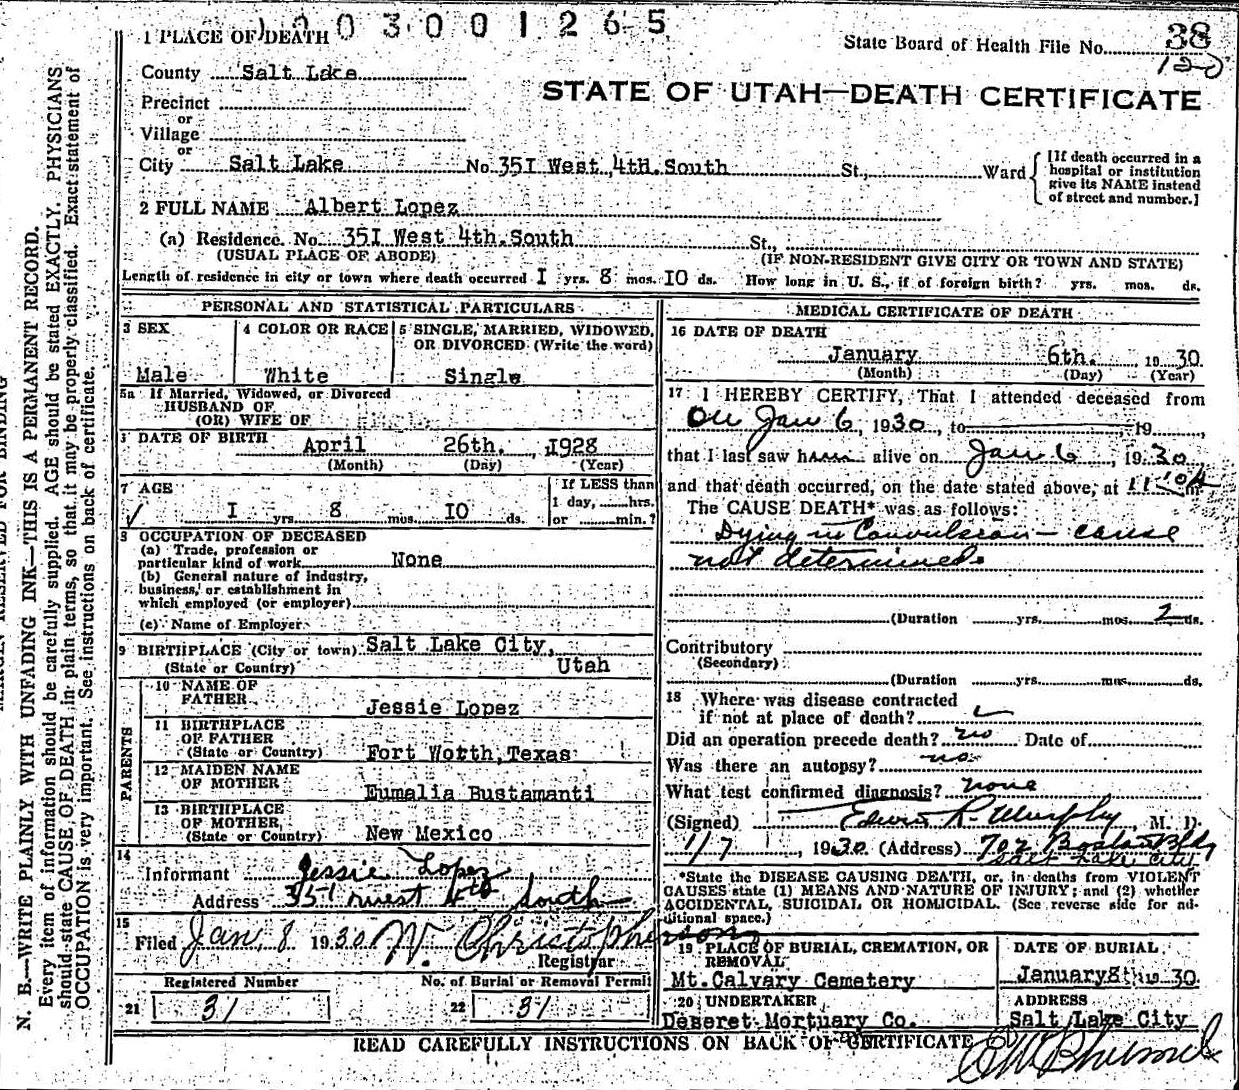 1 PLACE OF DEATH 003001265
State Board of Health File No. 38
120
County Salt Lake
STATE OF UTAH—DEATH CERTIFICATE
Precinct
or
Village
or
City Salt Lake No. 35I West 4th. South St., Ward [If death occurred in a hospital or institution give its NAME instead of street and number.]
2 FULL NAME Albert Lopez
(a) Residence. No. 35I West 4th. South St.,
(USUAL PLACE OF ABODE) (IF NON-RESIDENT GIVE CITY OR TOWN AND STATE)
Length of residence in city or town where death occurred I yrs. 8 mos. IO ds. How long in U. S., if of foreign birth? yrs. mos. ds.
PERSONAL AND STATISTICAL PARTICULARS
3 SEX
Male
4 COLOR OR RACE
White
5 SINGLE, MARRIED, WIDOWED, OR DIVORCED (Write the word)
Single
5a If Married, Widowed, or Divorced
HUSBAND OF
(OR) WIFE OF
DATE OF BIRTH April 26th. 1928
(Month) (Day) (Year)
7 AGE
I yrs. 8 mos. IO ds.
If LESS than
1 day, hrs.
or min.?
8 OCCUPATION OF DECEASED
(a) Trade, profession or
particular kind of work None
(b) General nature of industry,
business, or establishment in
which employed (or employer)
(c) Name of Employer
9 BIRTHPLACE (City or town) Salt Lake City,
(State or Country) Utah
PARENTS
10 NAME OF
FATHER Jessie Lopez
11 BIRTHPLACE
OF FATHER
(State or Country) Fort Worth, Texas
12 MAIDEN NAME
OF MOTHER Eumalia Bustamanti
13 BIRTHPLACE
OF MOTHER,
(State or Country) New Mexico
14
Informant Jessie Lopez
Address 351 west 4th South
15
Filed Jan. 8 1930 W. Christopherson
Registrar
Registered Number
21 31
No. of Burial or Removal Permit
22 31
MEDICAL CERTIFICATE OF DEATH
16 DATE OF DEATH
January 6th. 1930
(Month) (Day) (Year)
17 I HEREBY CERTIFY, That I attended deceased from
On Jan 6, 1930, to 19
that I last saw h alive on Jan 6, 1930
and that death occurred, on the date stated above, at
The CAUSE DEATH* was as follows:
Dying in Convulsion - cause
not determined
(Duration yrs. mos. 2 ds.
Contributory
(Secondary)
(Duration yrs. mos. ds.
18 Where was disease contracted
if not at place of death?
Did an operation precede death? no Date of
Was there an autopsy? no
What test confirmed diagnosis? none
(Signed) Edwin R. Murphy, M. D.
1/7, 1930 (Address) 702 Boston Bldg
Salt Lake City
*State the DISEASE CAUSING DEATH, or, in deaths from VIOLENT
CAUSES state (1) MEANS AND NATURE OF INJURY; and (2) whether
ACCIDENTAL, SUICIDAL OR HOMICIDAL. (See reverse side for ad-
ditional space.)
19 PLACE OF BURIAL, CREMATION, OR
REMOVAL
Mt. Calvary Cemetery
DATE OF BURIAL
January 8th 1930
20 UNDERTAKER
Deseret Mortuary Co.
ADDRESS
Salt Lake City
READ CAREFULLY INSTRUCTIONS ON BACK OF CERTIFICATE
MARGIN RESERVED FOR BINDING
N. B.—WRITE PLAINLY WITH UNFADING INK—THIS IS A PERMANENT RECORD.
Every item of information should be carefully supplied. AGE should be stated EXACTLY. PHYSICIANS
should state CAUSE OF DEATH in plain terms, so that it may be properly classified. Exact statement of
OCCUPATION is very important. See instructions on back of certificate.